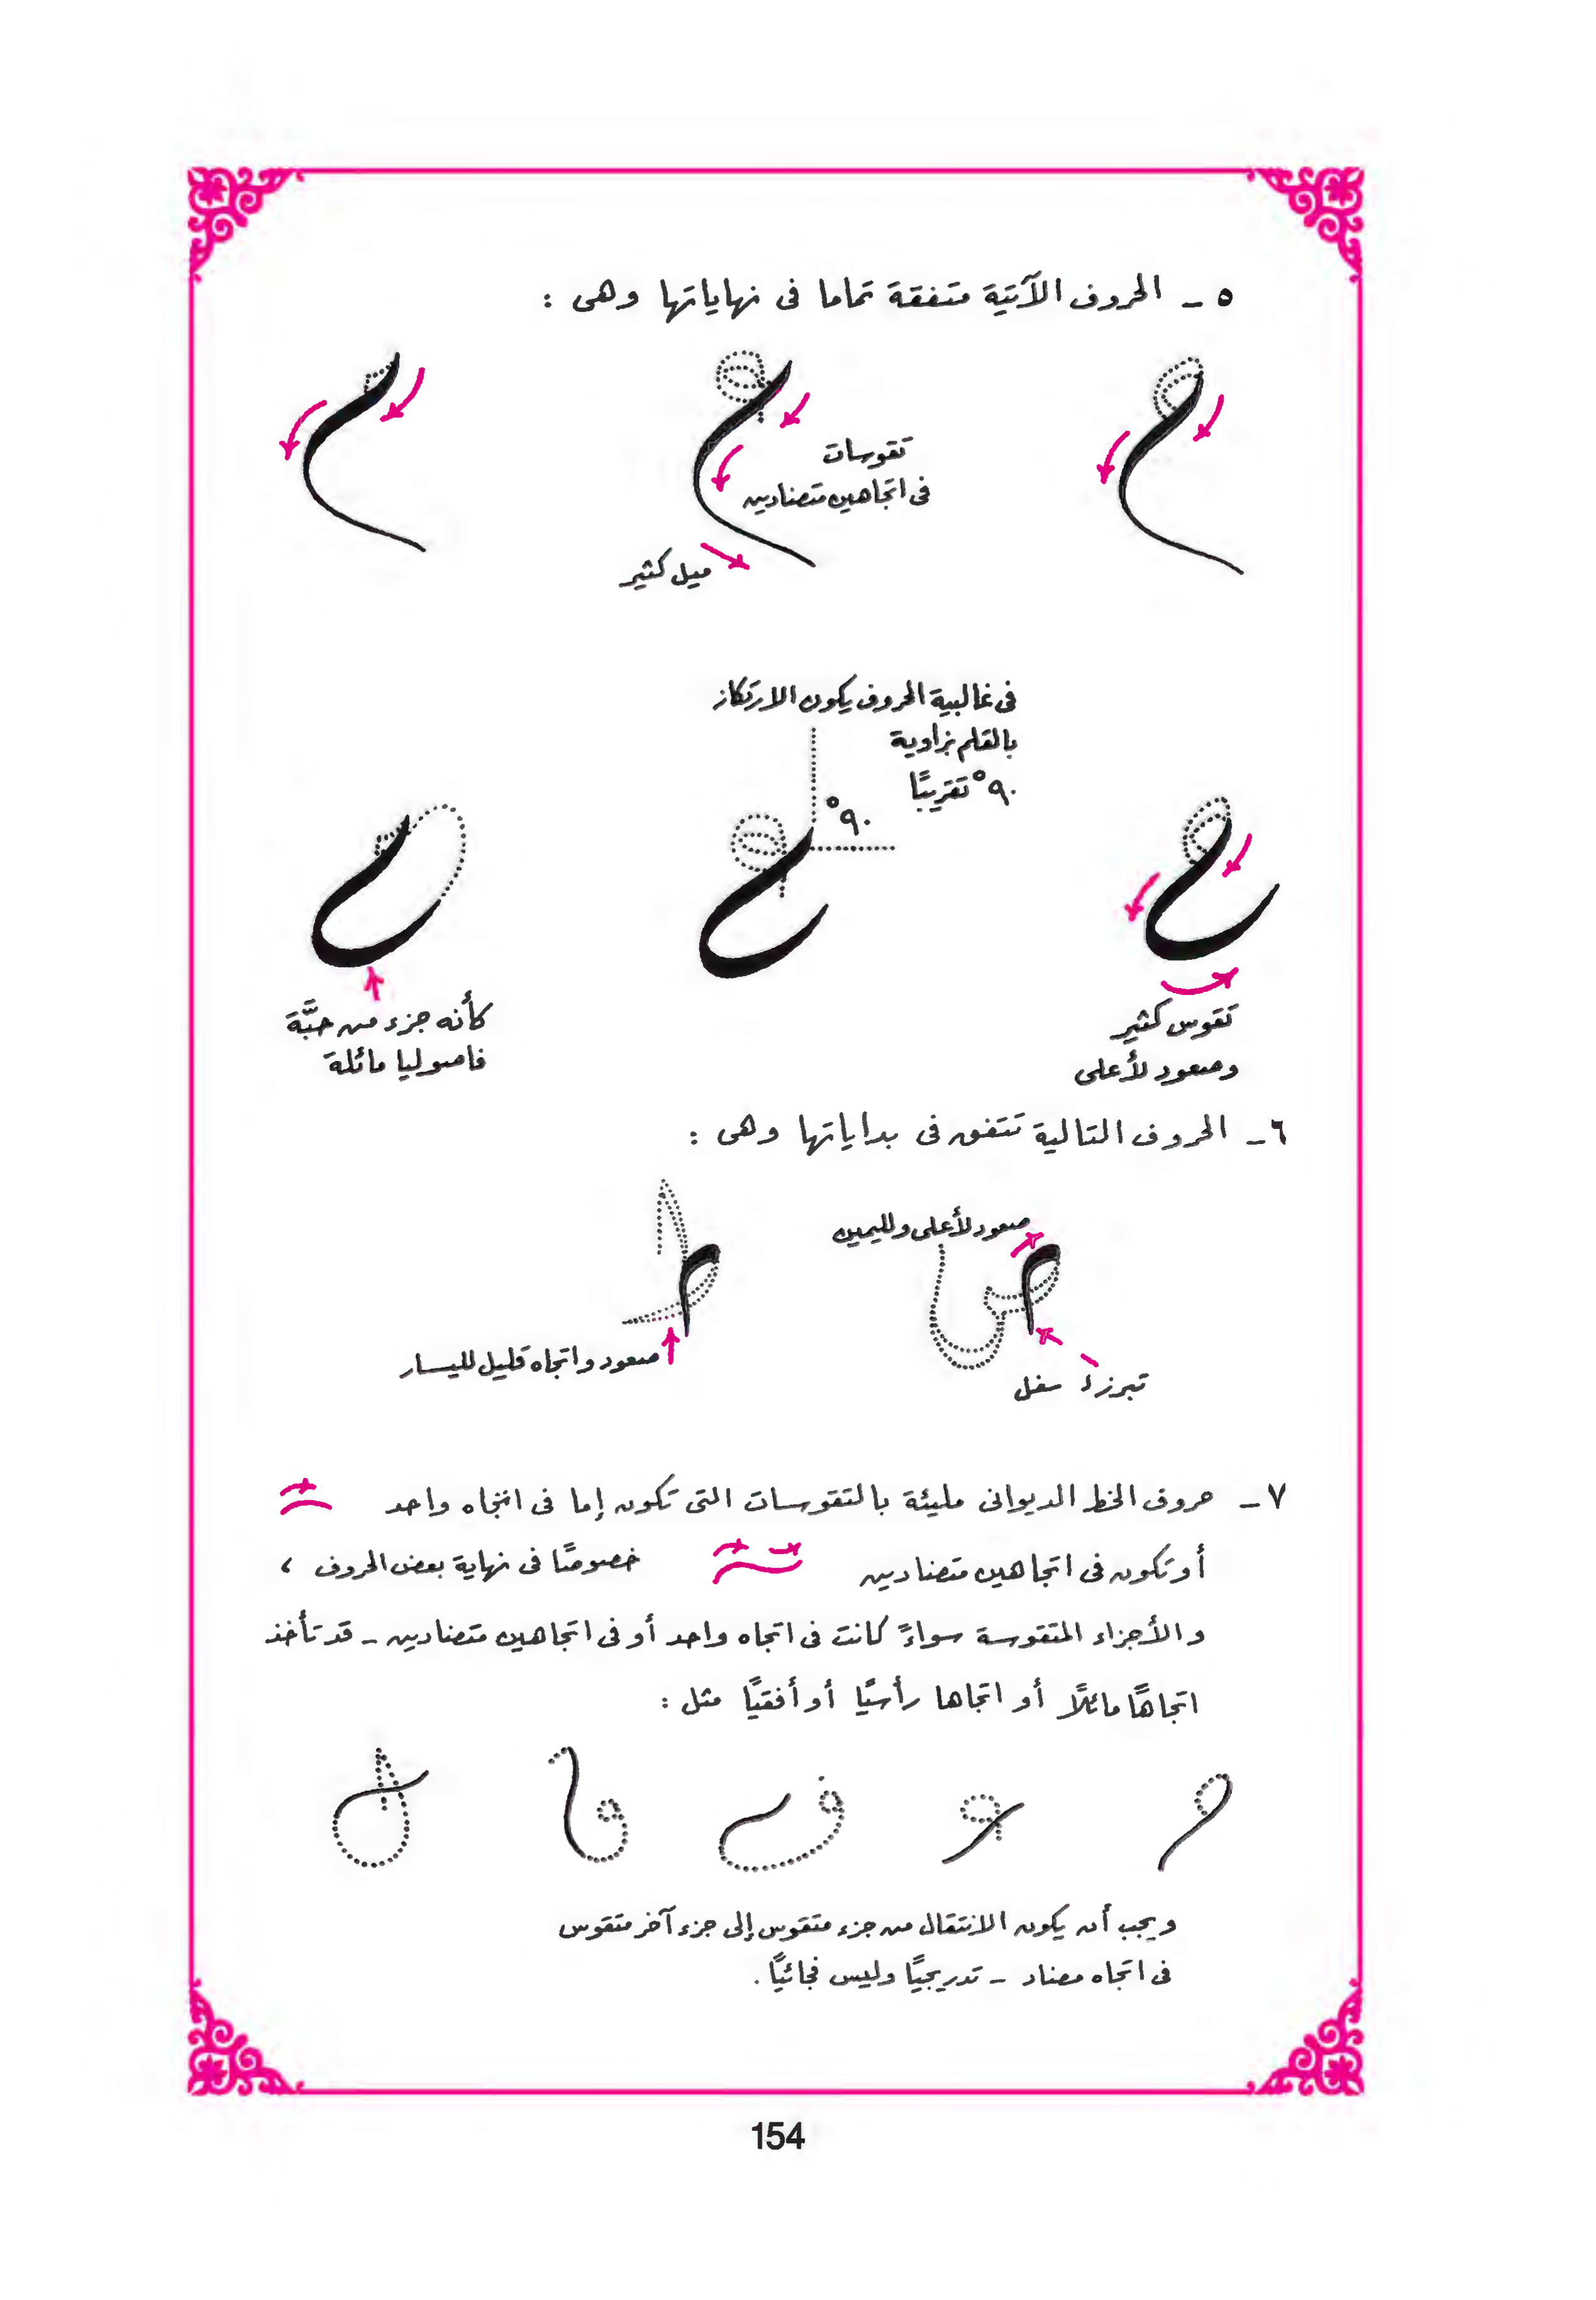 ٥ - الحروف الآتية متفقة تماما فى نهاياتها وهى :
تقوسات
فى اتجاهين متضادين
ميل كثير
فى غالبية الحروف يكون الارتكاز
بالقلم بزاوية
٩٠° تقريبًا
٩٠°
تقوس كثير
وصعود لأعلى
كأنه جزء من حبَّة
فاصوليا مائلة
٦ - الحروف التالية تتفق فى بداياتها وهى :
صعود لأعلى ولليمين
صعود واتجاه قليل لليسار
سفل
٧ - حروف الخط الديوانى مليئة بالتقوسات التى تكون إما فى اتجاه واحد
أو تكون فى اتجاهين متضادين خصوصًا فى نهاية بعض الحروف ،
والأجزاء المتقوسة سواءً كانت فى اتجاه واحد أو فى اتجاهين متضادين - قد تأخذ
اتجاهًا مائلًا أو اتجاها رأسيًا أو أفقيًا مثل :
ويجب أن يكون الانتقال من جزء متقوس إلى جزء آخر متقوس
فى اتجاه مضاد - تدريجيًا وليس فجائيًا .
154